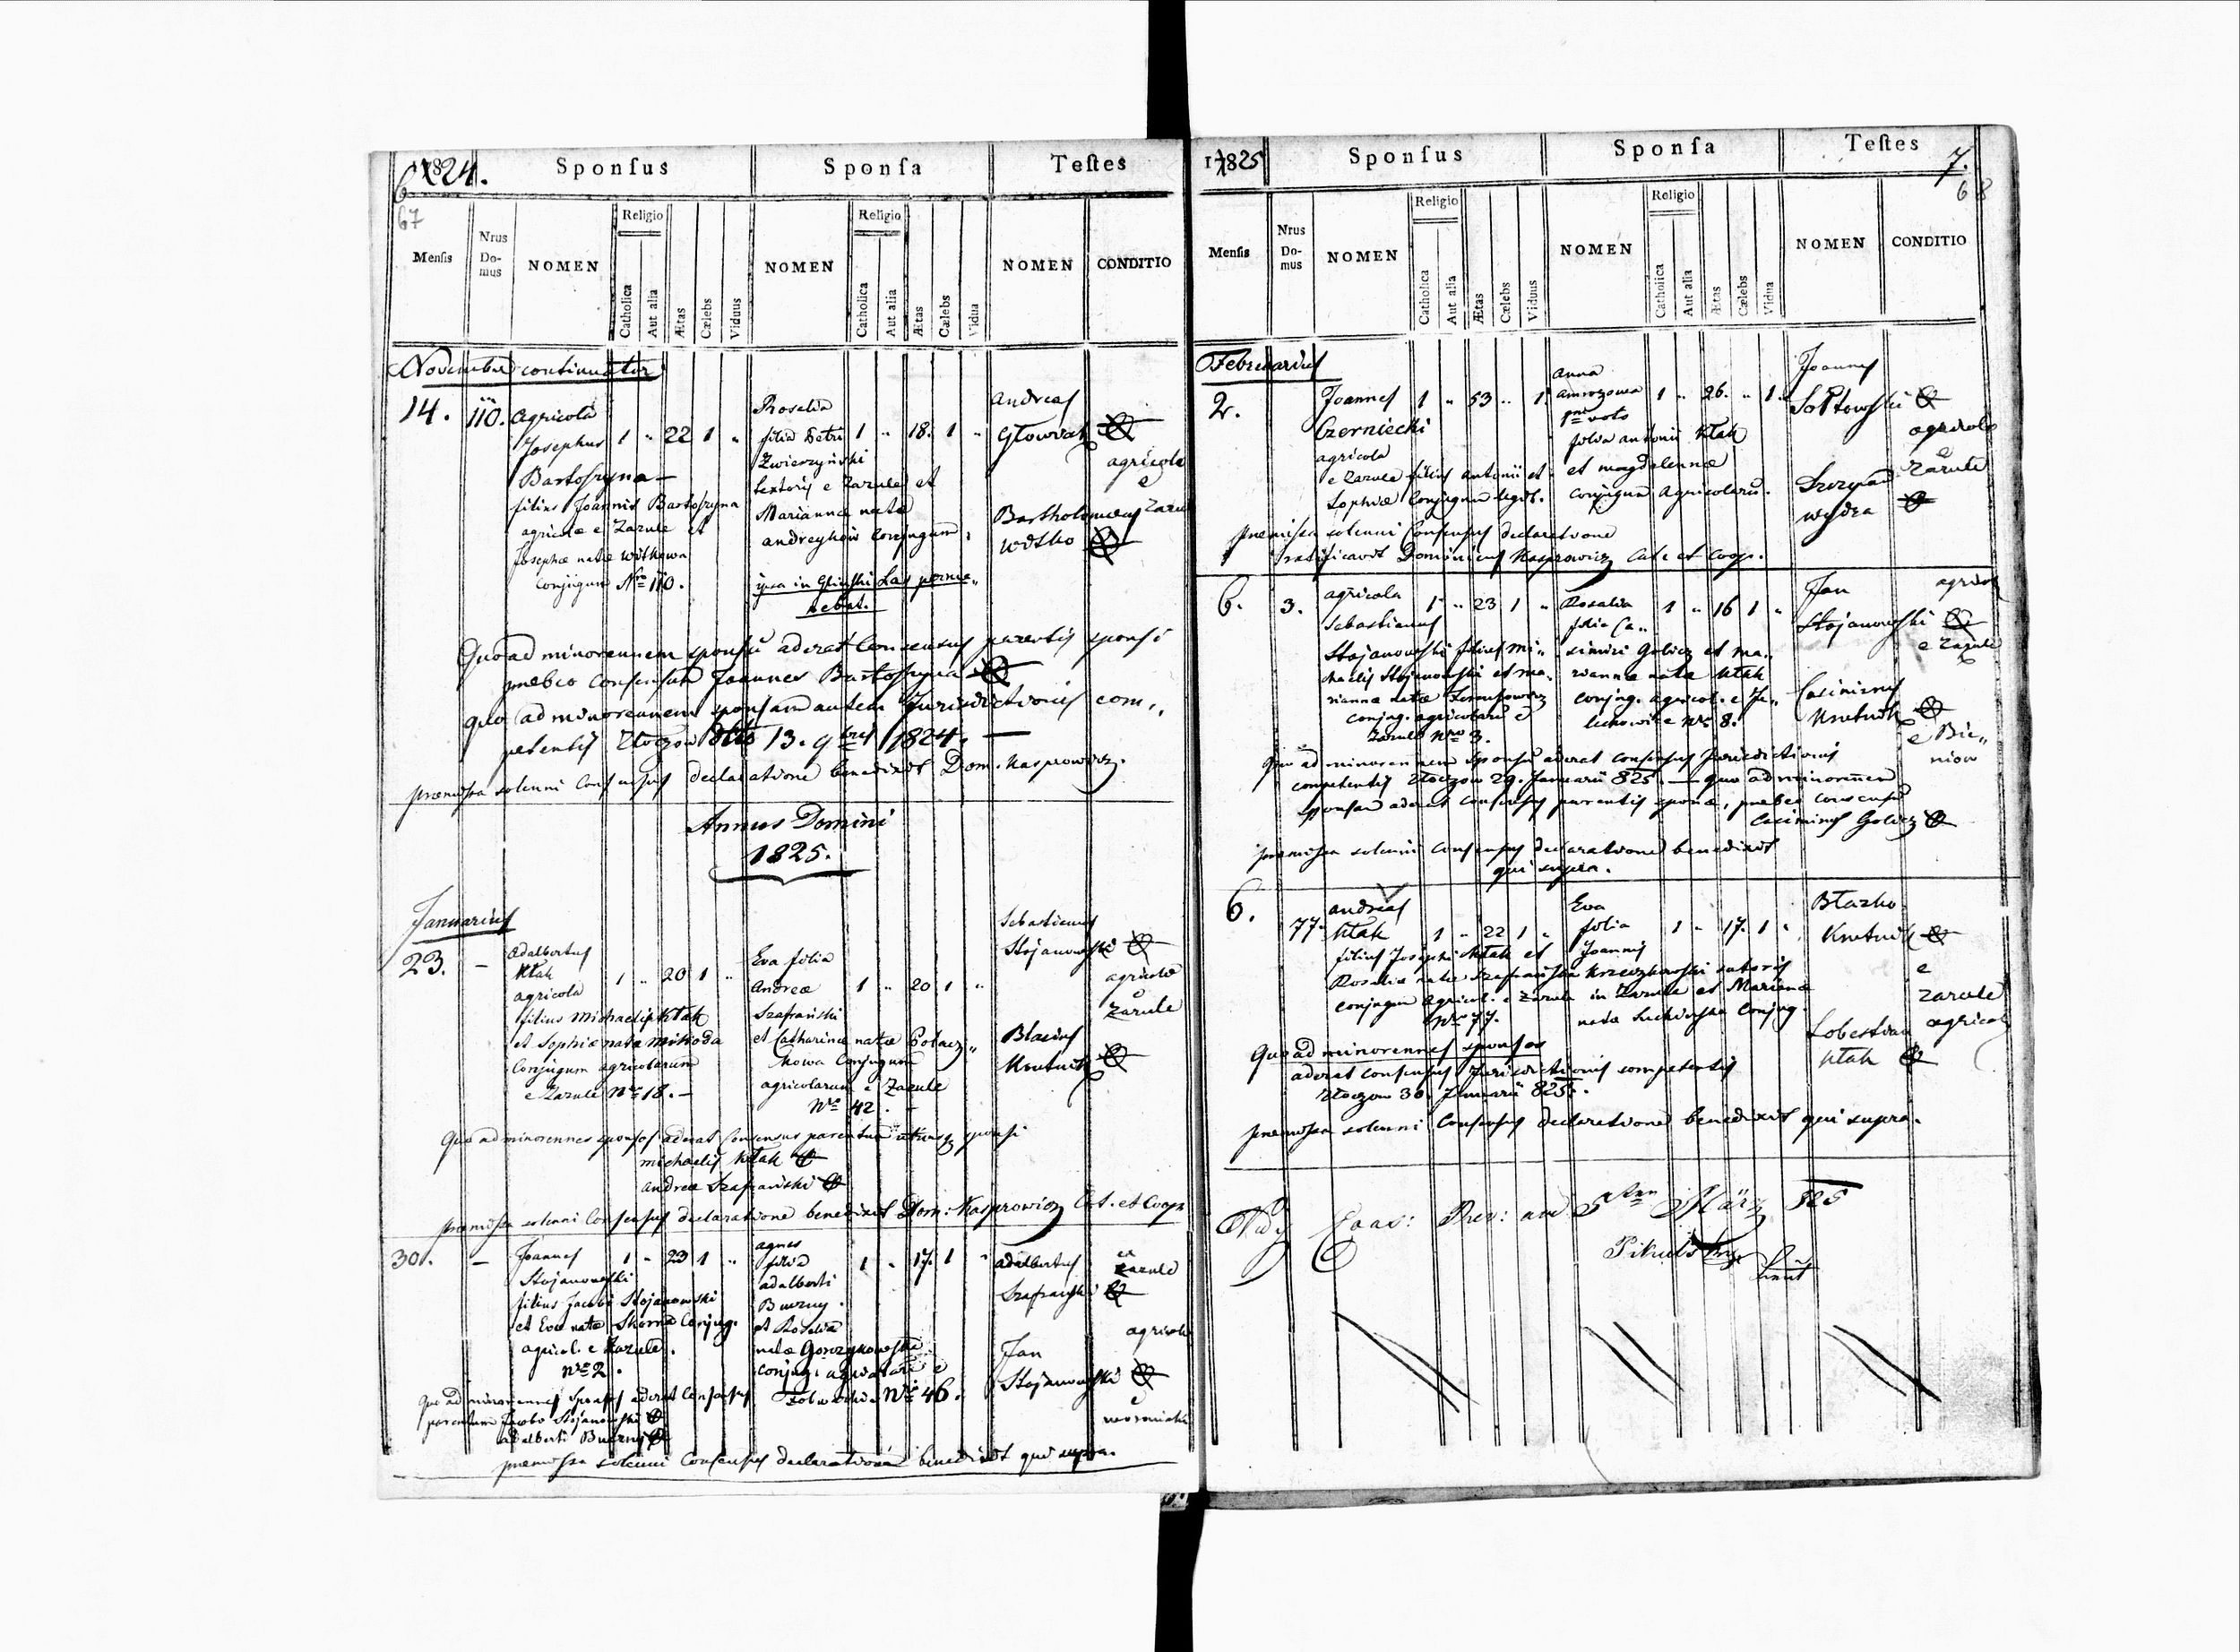 1824.
6
67
Sponſus
Sponſa
Teſtes
Menſis
Nrus Do-mus
NOMEN
Religio
Catholica
Aut alia
Ætas
Cælebs
Viduus
NOMEN
Religio
Catholica
Aut alia
Ætas
Cælebs
Vidua
NOMEN
CONDITIO
November continuatur
14.
110.
Agricola
Josephus
1 " 22 1 "
Bartoszyna
filius Joannis Bartoszyna
agricolæ e Zarule et
Josephæ natæ Witkowa
Conjugum Nro 110.
Rosalia
filia Petri
1 " 18. 1 "
Zwierzyński
textoris e Zarule et
Mariannæ natæ
Conjugum.
ipsa in Gliński Las perma„
nebat.
Andreas
Głowiak
agricola
e
Zarule
Bartholomeus
Witko
Quo ad minorennem sponsū aderat Consensus parentis sponsi
præbeo Consensum Joannes Bartoszyna
quo ad minorennem sponsam autem Jurisdictionis com„
petentis Złoczow dtto 13. 9bris 1824. —
præmissa solenni Consensus declaratione benedixit Dom. Kasprowicz.
Annus Domini
1825.
Januarius
23.
–
Adalbertus
Kłak
agricola
1 " 20 1 "
filius Michaelis Kłak
et Sophiæ natæ Mikoda
Conjugum agricolarum
e Zarule Nro 18. –
Eva filia
Andreæ
1 " 20 1 "
Szafrański
et Catharinæ natæ Połacz„
kowa Conjugum
agricolarum e Zarule
Nro 42. –
Sebastianus
Stojanowski
agricola
e
Zarule
Blasius
Krutnik
Quo ad minorennes sponsos aderat Consensus parentum utriusq sponsi
Michaelis Kłak
Andreæ Szafrański
præmissa solenni Consensus declaratione benedixit Dom: Kasprowicz Cat. et Coop
30.
–
Joannes
1 " 23 1 "
Stojanowski
filius Jacobi Stojanowski
et Evæ natæ Skorna Conjug.
agricol. e Zarule.
Nro 2.
Agnes
filia
1 " 17. 1 "
Adalberti
Burny.
et Rosaliæ
natæ Gorzykowska
conjugū agricolarū e
Nro 46.
Adalbertus
Szafrański
ex
Zarule
agricola
Jan
Stojanowski
e
Quo ad minorennes Sponsos aderat Consensus
parentum Jacobo Stojanowski
Adalberti Burny
præmissa solenni Consensus declaratione benedixit qui supra.
1825
Sponſus
Sponſa
Teſtes
7.
68
Menſis
Nrus Do-mus
NOMEN
Religio
Catholica
Aut alia
Ætas
Cælebs
Viduus
NOMEN
Religio
Catholica
Aut alia
Ætas
Cælebs
Vidua
NOMEN
CONDITIO
Februarius
2.
Joannes
1 " 53 " 1
Czerniecki
agricola
e Zarule filius Antonii et
Sophiæ Conjugum legit.
Anna
Amrozowa
1 " 26. " 1.
1mo voto
filia Antonii Kłak
et Magdalenæ
conjugum Agricolarū.
Joannes
Sołtowski
agricola
e
Zarule
Szczepan
Wydra
præmissa solenni Consensus declaratione
ratificavit Dominicus Kasprowicz Cate et Coop.
6.
3.
agricola
Sebastianus
1 " 23 1 "
Stojanowski filius Mi„
chaelis Stojanowski et Ma„
riannæ natæ
conjug. agricolarū e
Zarule Nro 3.
Rosalia
filia Ca„
1 " 16 1 "
simiri Golicz et Ma„
riannæ natæ Kłak
conjug. agricol. e
Nro 8.
Jan
Stojanowski
agricola
e Zarule
Casimirus
Krutnik
e Bie„
niow
Quo ad minorennem Sponsū aderat consensus Jurisdictionis
competentis Złoczow 29. Januarii 825. — quo ad minorennem
sponsam aderat Consensus parentis sponsæ, præbeo consensū
Casimirus Golicz
præmissa solenni Consensus declaratione benedixit
qui supra.
6.
77.
Andreas
Kłak
1 " 22 1 "
filius Josephi Kłak et
Rosaliæ natæ Szafrańska
conjugum agricol. e Zarule
Nro 77.
Eva
filia
1 " 17. 1 "
Joannis
Krzeczkowski sutoris
in Zarule et Mariannæ
natæ Conjug.
Błazko
Krutnik
e
Zarule
agricola
Sobestian
Kłak
Quo ad minorennes sponsos
aderat consensus Jurisdictionis competentis
Złoczow 30. Januarii 825.
præmissa solenni Consensus declaratione benedixit qui supra.
Rev: am 5ten März 825